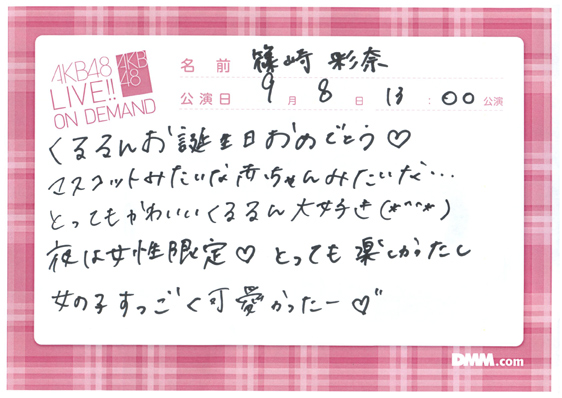 AKB48
LIVE!!
ON DEMAND
AKB
48
名前 篠崎 彩奈
公演日 9月 8日 13:00 公演
くるるんお誕生日おめでとう♡
マスコットみたいな赤ちゃんみたいな…
とってもかわいいくるるん大好き(*^^*)
夜は女性限定♡ とっても楽しかったし
女の子すっごく可愛かったー♡"
DMM.com